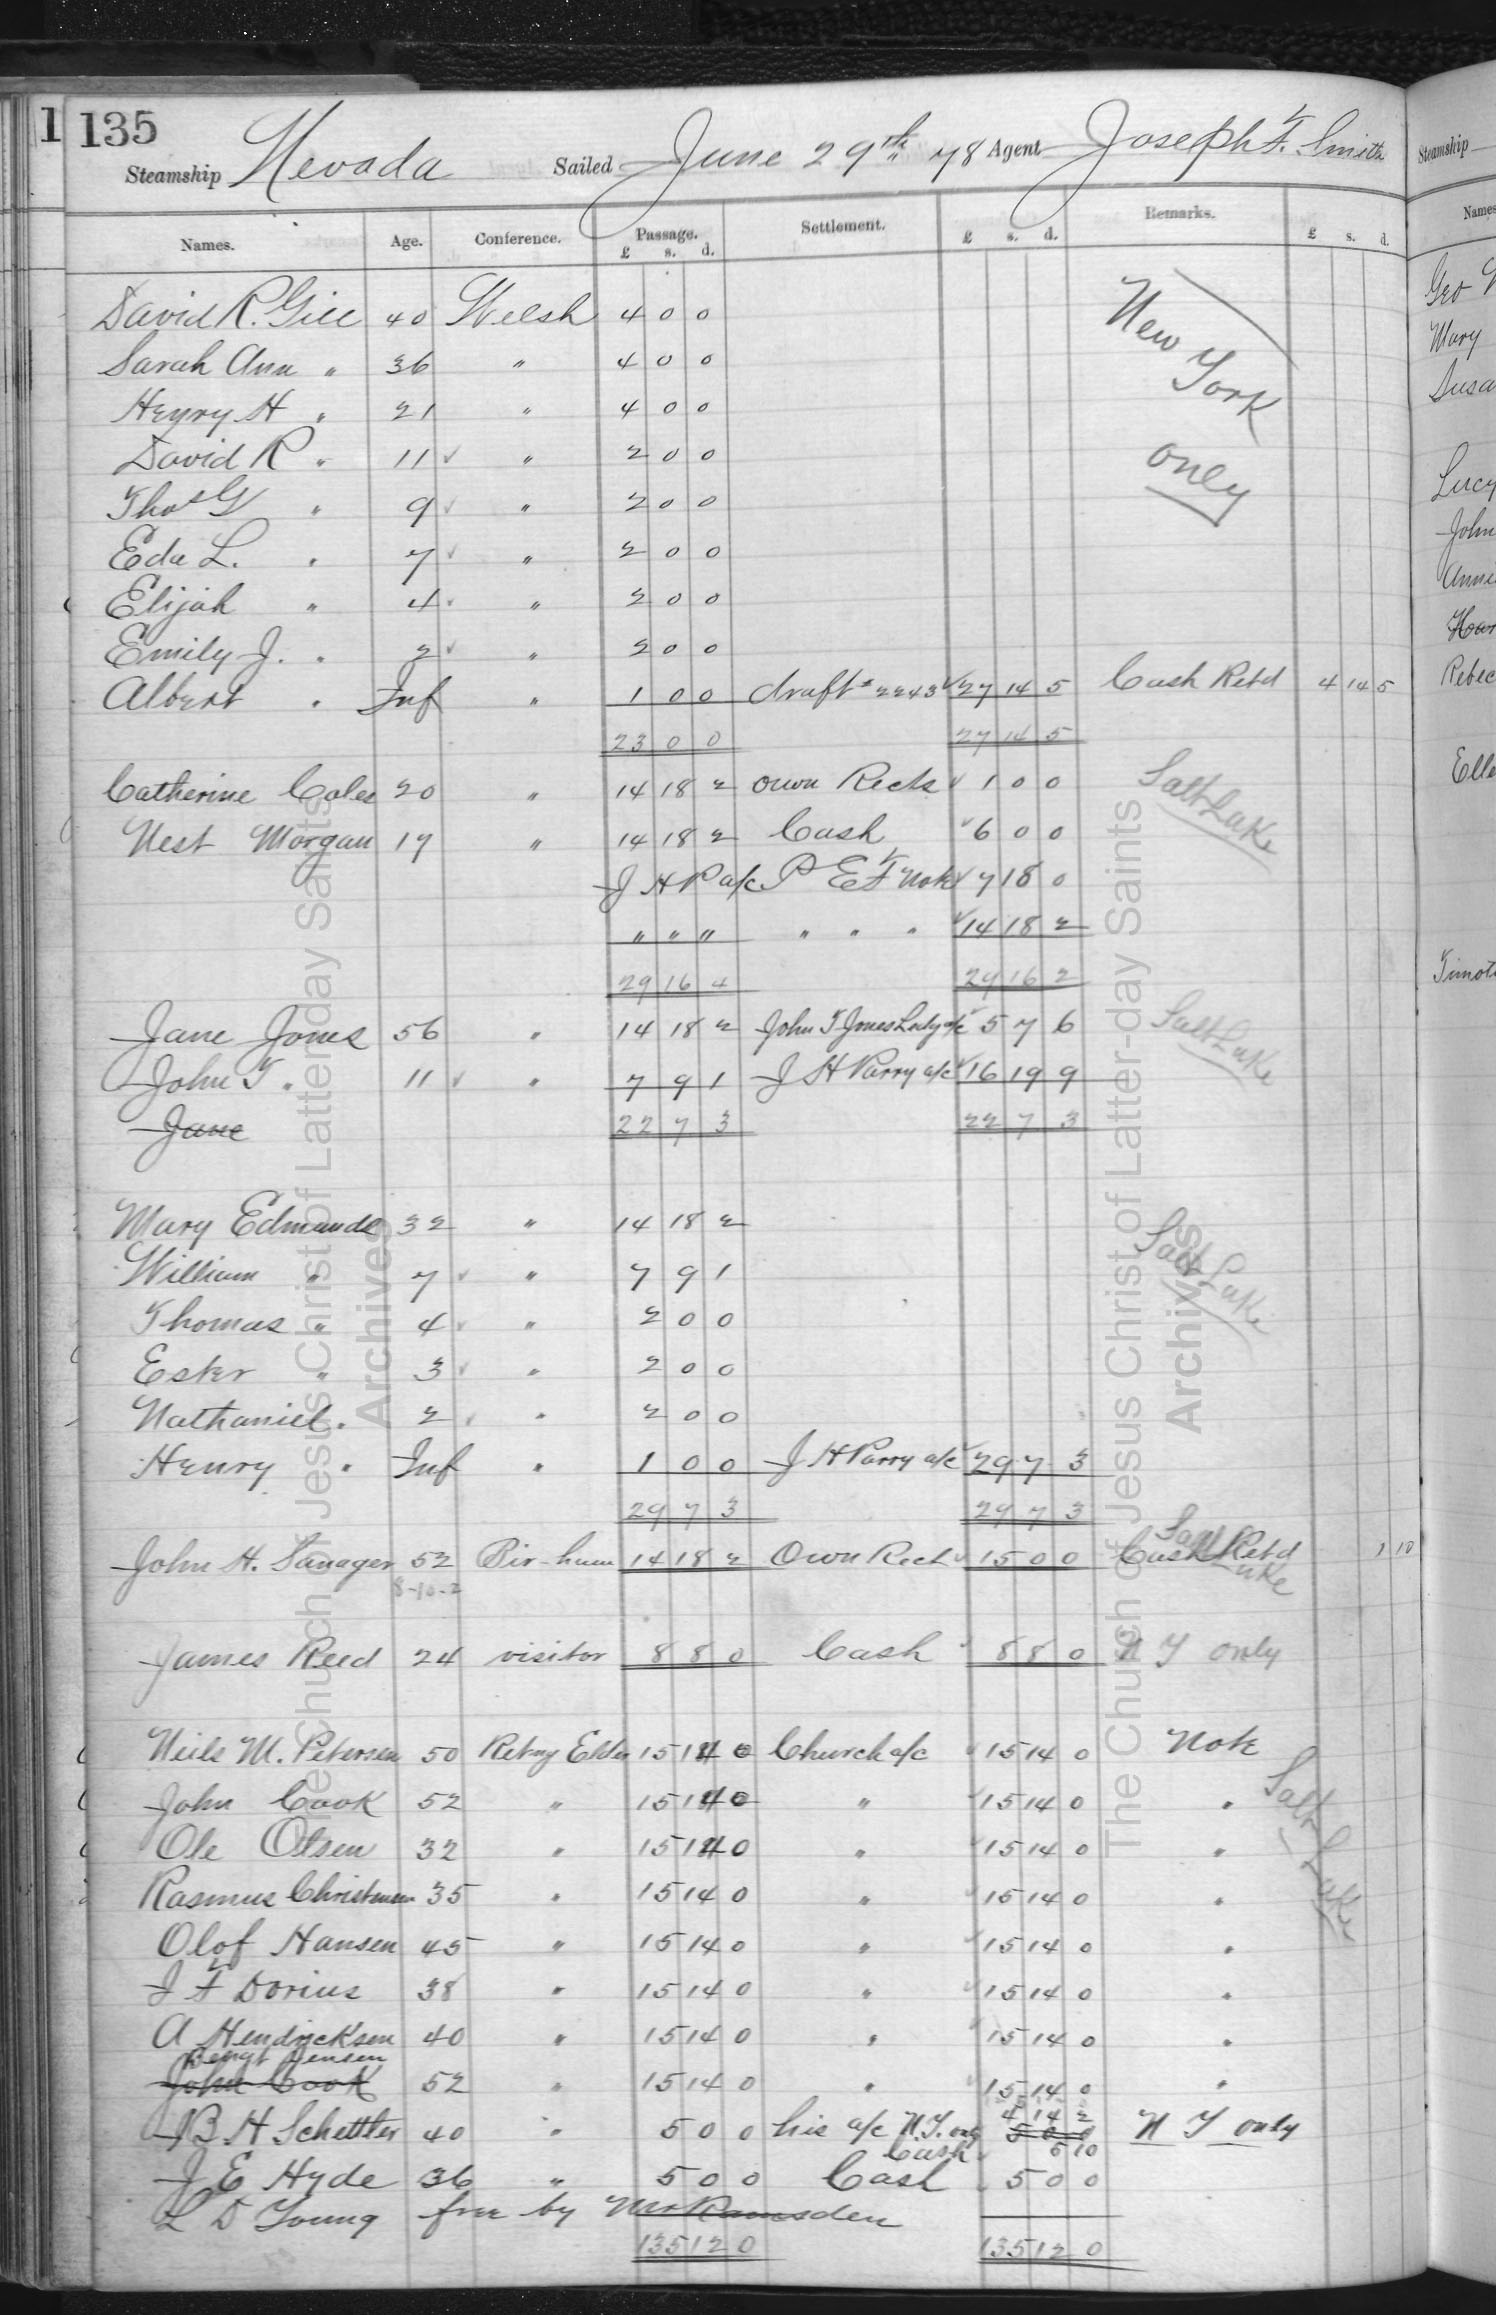 1 135
Steamship Nevada Sailed June 29th 78 Agent Joseph F. Smith
Names. Age. Conference. Passage. Settlement. £ s. d. Remarks. £ s. d.
£ s. d.
David R. Gill 40 Welsh 4 0 0
Sarah Ann " 36 " 4 0 0
Henry H " 21 " 4 0 0
New York only
David R " 11 " 2 0 0
Thos G " 9 " 2 0 0
Eda L. " 7 " 2 0 0
Elijah " 4 " 2 0 0
Emily J. " 2 " 2 0 0
Albert " Inf " 1 0 0 draft # 2243 27 14 5 Cash Retd 4 14 5
23 0 0 27 14 5
Catherine Coles 20 " 14 18 2 Own Rects 1 0 0 Salt Lake
Nest Morgan 17 " 14 18 2 Cash 6 0 0
J H P a/c P E F Note 7 18 0
" " " " " " 14 18 2
29 16 4 29 16 2
Jane Jones 56 " 14 18 2 John T Jones Ludy a/c 5 7 6 Salt Lake
John T " 11 " 7 9 1 J H Parry a/c 16 19 9
Jane 22 7 3 22 7 3
Mary Edmunds 32 " 14 18 2 Salt Lake
William " 7 " 7 9 1
Thomas " 4 " 2 0 0
Ester " 3 " 2 0 0
Nathaniel " 2 " 2 0 0
Henry " Inf " 1 0 0 J H Parry a/c 29 7 3
29 7 3 29 7 3
John H. Sanager 52 Bir-ham 14 18 2 Own Rect 15 0 0 Cash Retd 1 10
Salt Lake
8-10-2
James Reed 24 visitor 8 8 0 Cash 8 8 0 N Y only
Neils M. Petersen 50 Retng Elder 15 14 0 Church a/c 15 14 0 Note
John Cook 52 " 15 14 0 " 15 14 0 "
Salt Lake
Ole Olsen 32 " 15 14 0 " 15 14 0 "
Rasmus Christensen 35 " 15 14 0 " 15 14 0 "
Olof Hansen 45 " 15 14 0 " 15 14 0 "
J F Dorius 38 " 15 14 0 " 15 14 0 "
A Hendricksen 40 " 15 14 0 " 15 14 0 "
Bengt Jensen
John Cook 52 " 15 14 0 " 15 14 0 "
4 14 2
B H Schettler 40 " 5 0 0 his a/c N.Y. only 5 0 0 N Y only
Cash 5 10
J E Hyde 36 " 5 0 0 Cash 5 0 0
L D Young free by Mr Ramsden
135 12 0 135 12 0
The Church of Jesus Christ of Latter-day Saints
Archives
The Church of Jesus Christ of Latter-day Saints
Archives
Steamship
Names
Geo
Mary
Susa
Lucy
John
Annie
Rebec
Elle
Timot